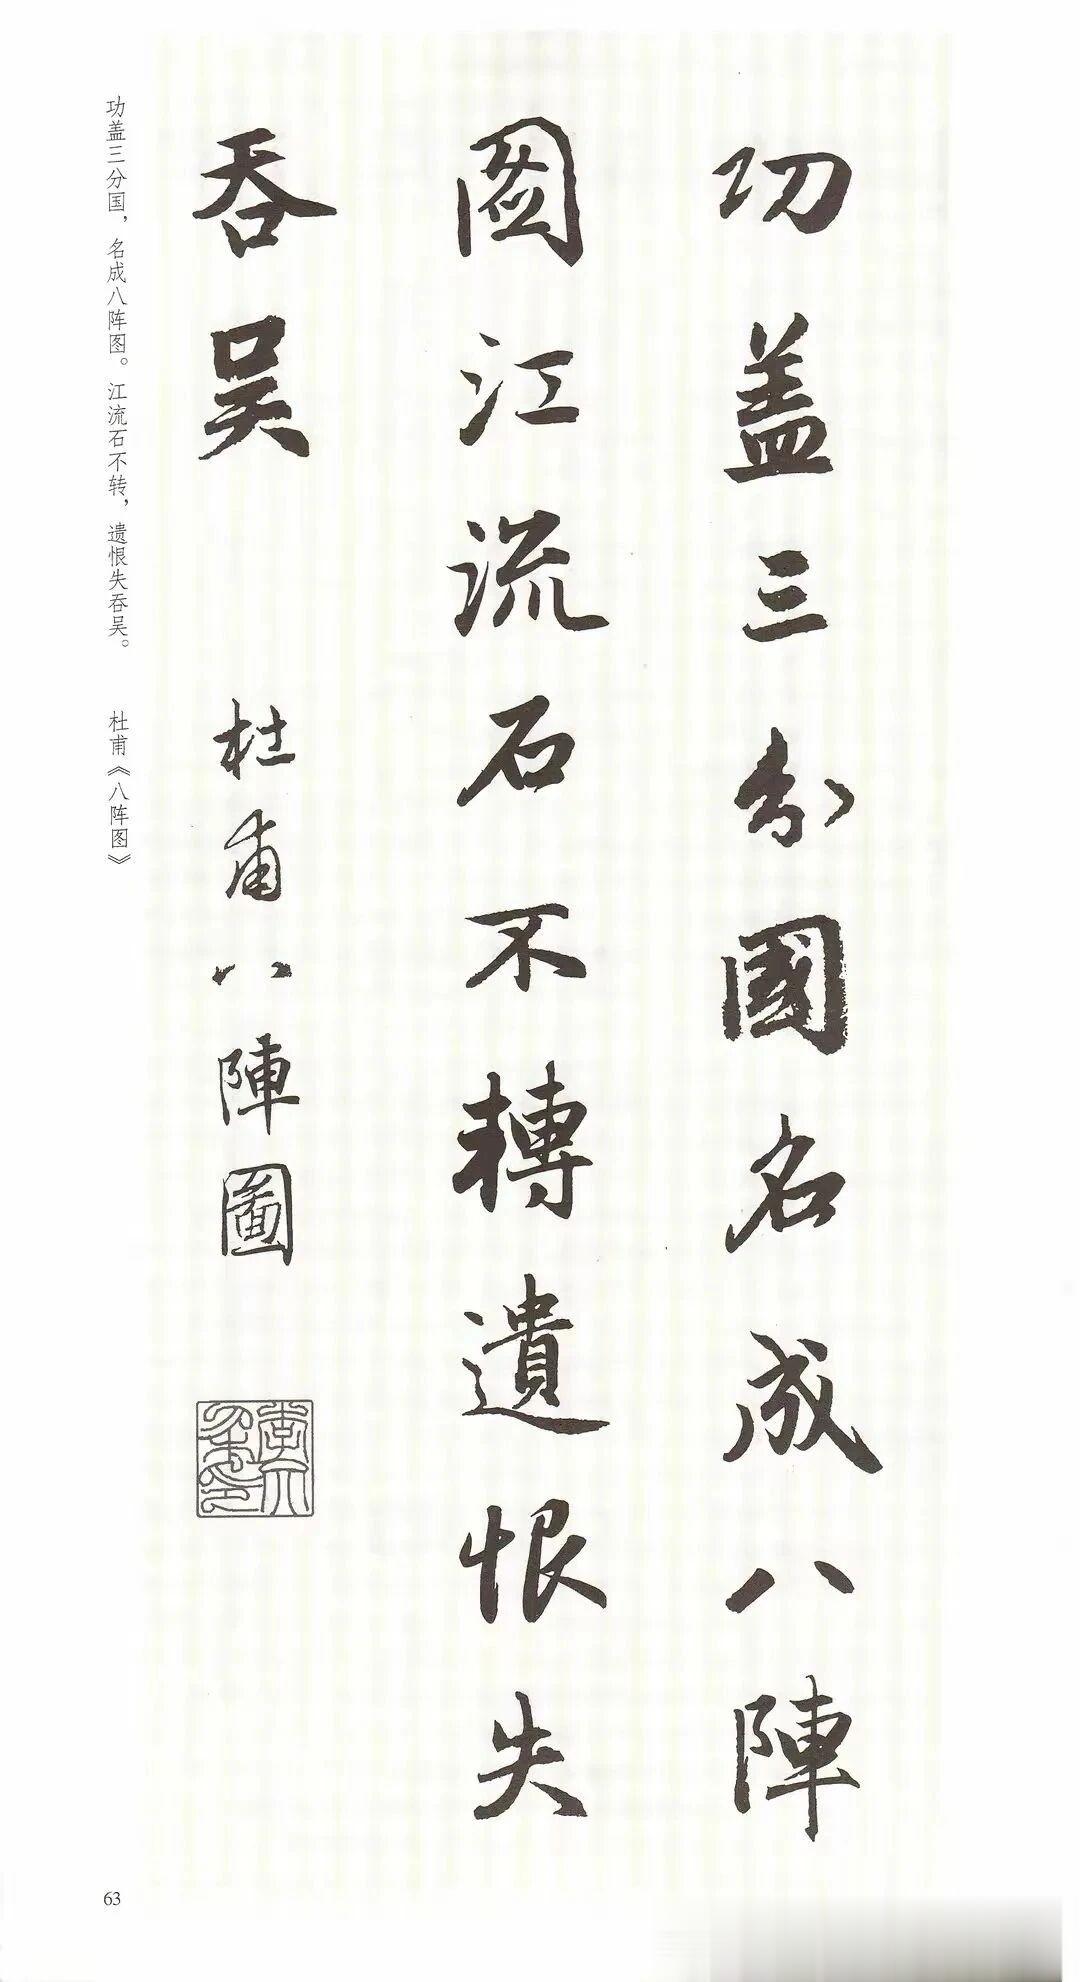 功盖三分國名成八陣
圖江流石不轉遺恨失
吞吴
杜甫八陣圖
功盖三分国，名成八阵图。江流石不转，遗恨失吞吴。 杜甫《八阵图》
63